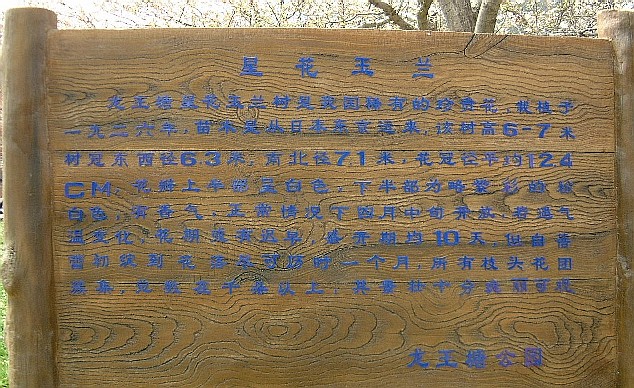 星花玉兰
龙王塘星花玉兰树是我国稀有的珍贵花，栽植于
一九二六年，苗木是从日本东京运来，该树高6-7米
树冠东西径6.3米，南北径7.1米，花冠径平均12.4
CM，花瓣上半部呈白色，下半部为略紫色的粉
白色，有香气，正常情况下四月中旬开放，若遇气
温变化，花期或有迟早，盛开期约10天，但自含
苞初绽到花落头历时一个月，所有枝头花团
簇集，花数在千朵以上，其景壮
龙王塘公园